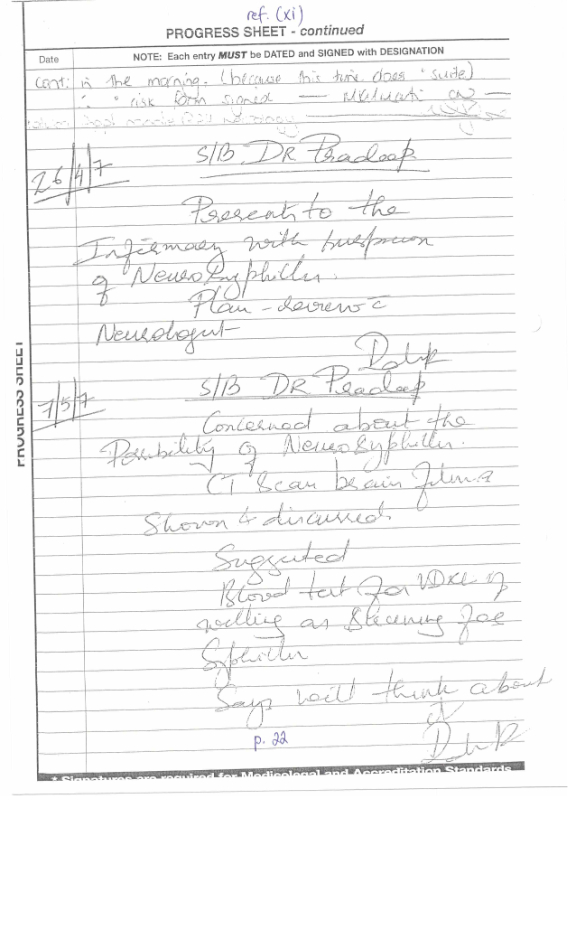 ref. (xi)
PROGRESS SHEET - continued
Date NOTE: Each entry MUST be DATED and SIGNED with DESIGNATION
Cont: in the morning. (because this time does suite)
risk form signed —
26/4/7 S/B DR Pradeep
Presents to the
Infirmary with suspicion
of NeuroSyphillis.
Plan - review c̄
Neurologist
PROGRESS SHEET
7/5/7 S/B DR Pradeep
Concerned about the
Possibility of NeuroSyphillis.
CT Scan brain films
Shown & discussed.
Suggested
Blood test for VDRL if
willing as Screening for
Syphillis
Says will think about
it
p. 22
* Signatures are required for Medicolegal and Accreditation Standards